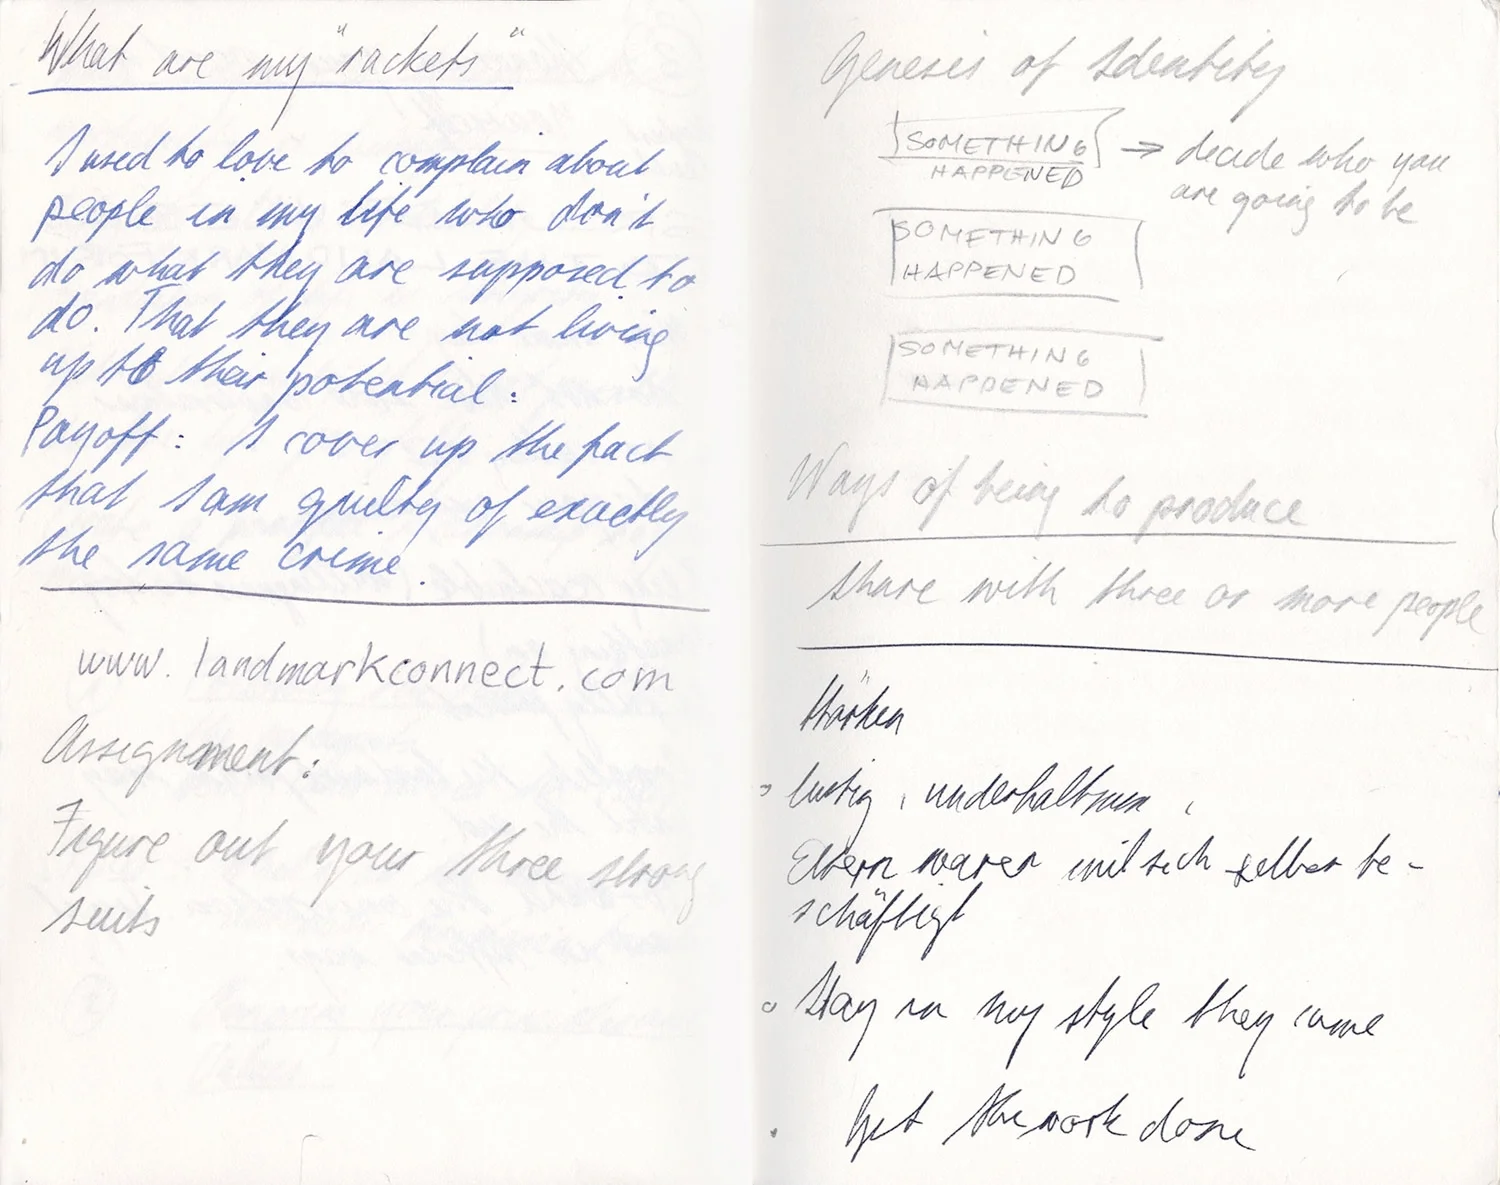 What are my "rackets"
I used to love to complain about
people in my life who don't
do what they are supposed to
do. That they are not living
up to their potential.
Payoff: I cover up the fact
that I am guilty of exactly
the same crime.
www.landmarkconnect.com
Assignment:
Figure out your three strong
suits
Genesis of Identity
SOMETHING
HAPPENED
→ decide who you
are going to be
SOMETHING
HAPPENED
SOMETHING
HAPPENED
Ways of being to produce
share with three or more people
Stärken
lustig, unterhaltsam,
Eltern waren mit sich selber be-
schäftigt
Stay in my style they come
Get the work done